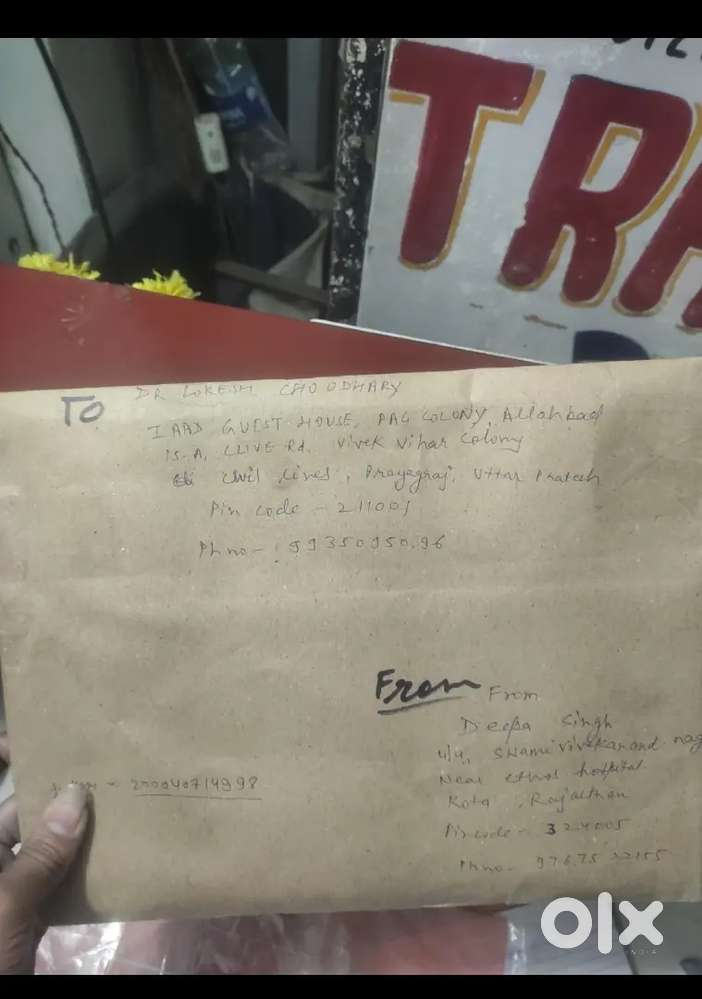 TRA
TO
DR LOKESH CHOUDHARY
IAAD GUEST HOUSE, PAG COLONY, Allahbad
15-A, CLIVE Rd, Vivek Vihar Colony
civil lines, Prayagraj, Uttar Pradesh
Pin code - 211001
Ph no - 9935095096
From From
Deepa Singh
4/4, Swami vivekanand nag
Near ethos hospital
Kota, Rajasthan
Pin code - 324005
Ph no -
200040714998
olx
INDIA